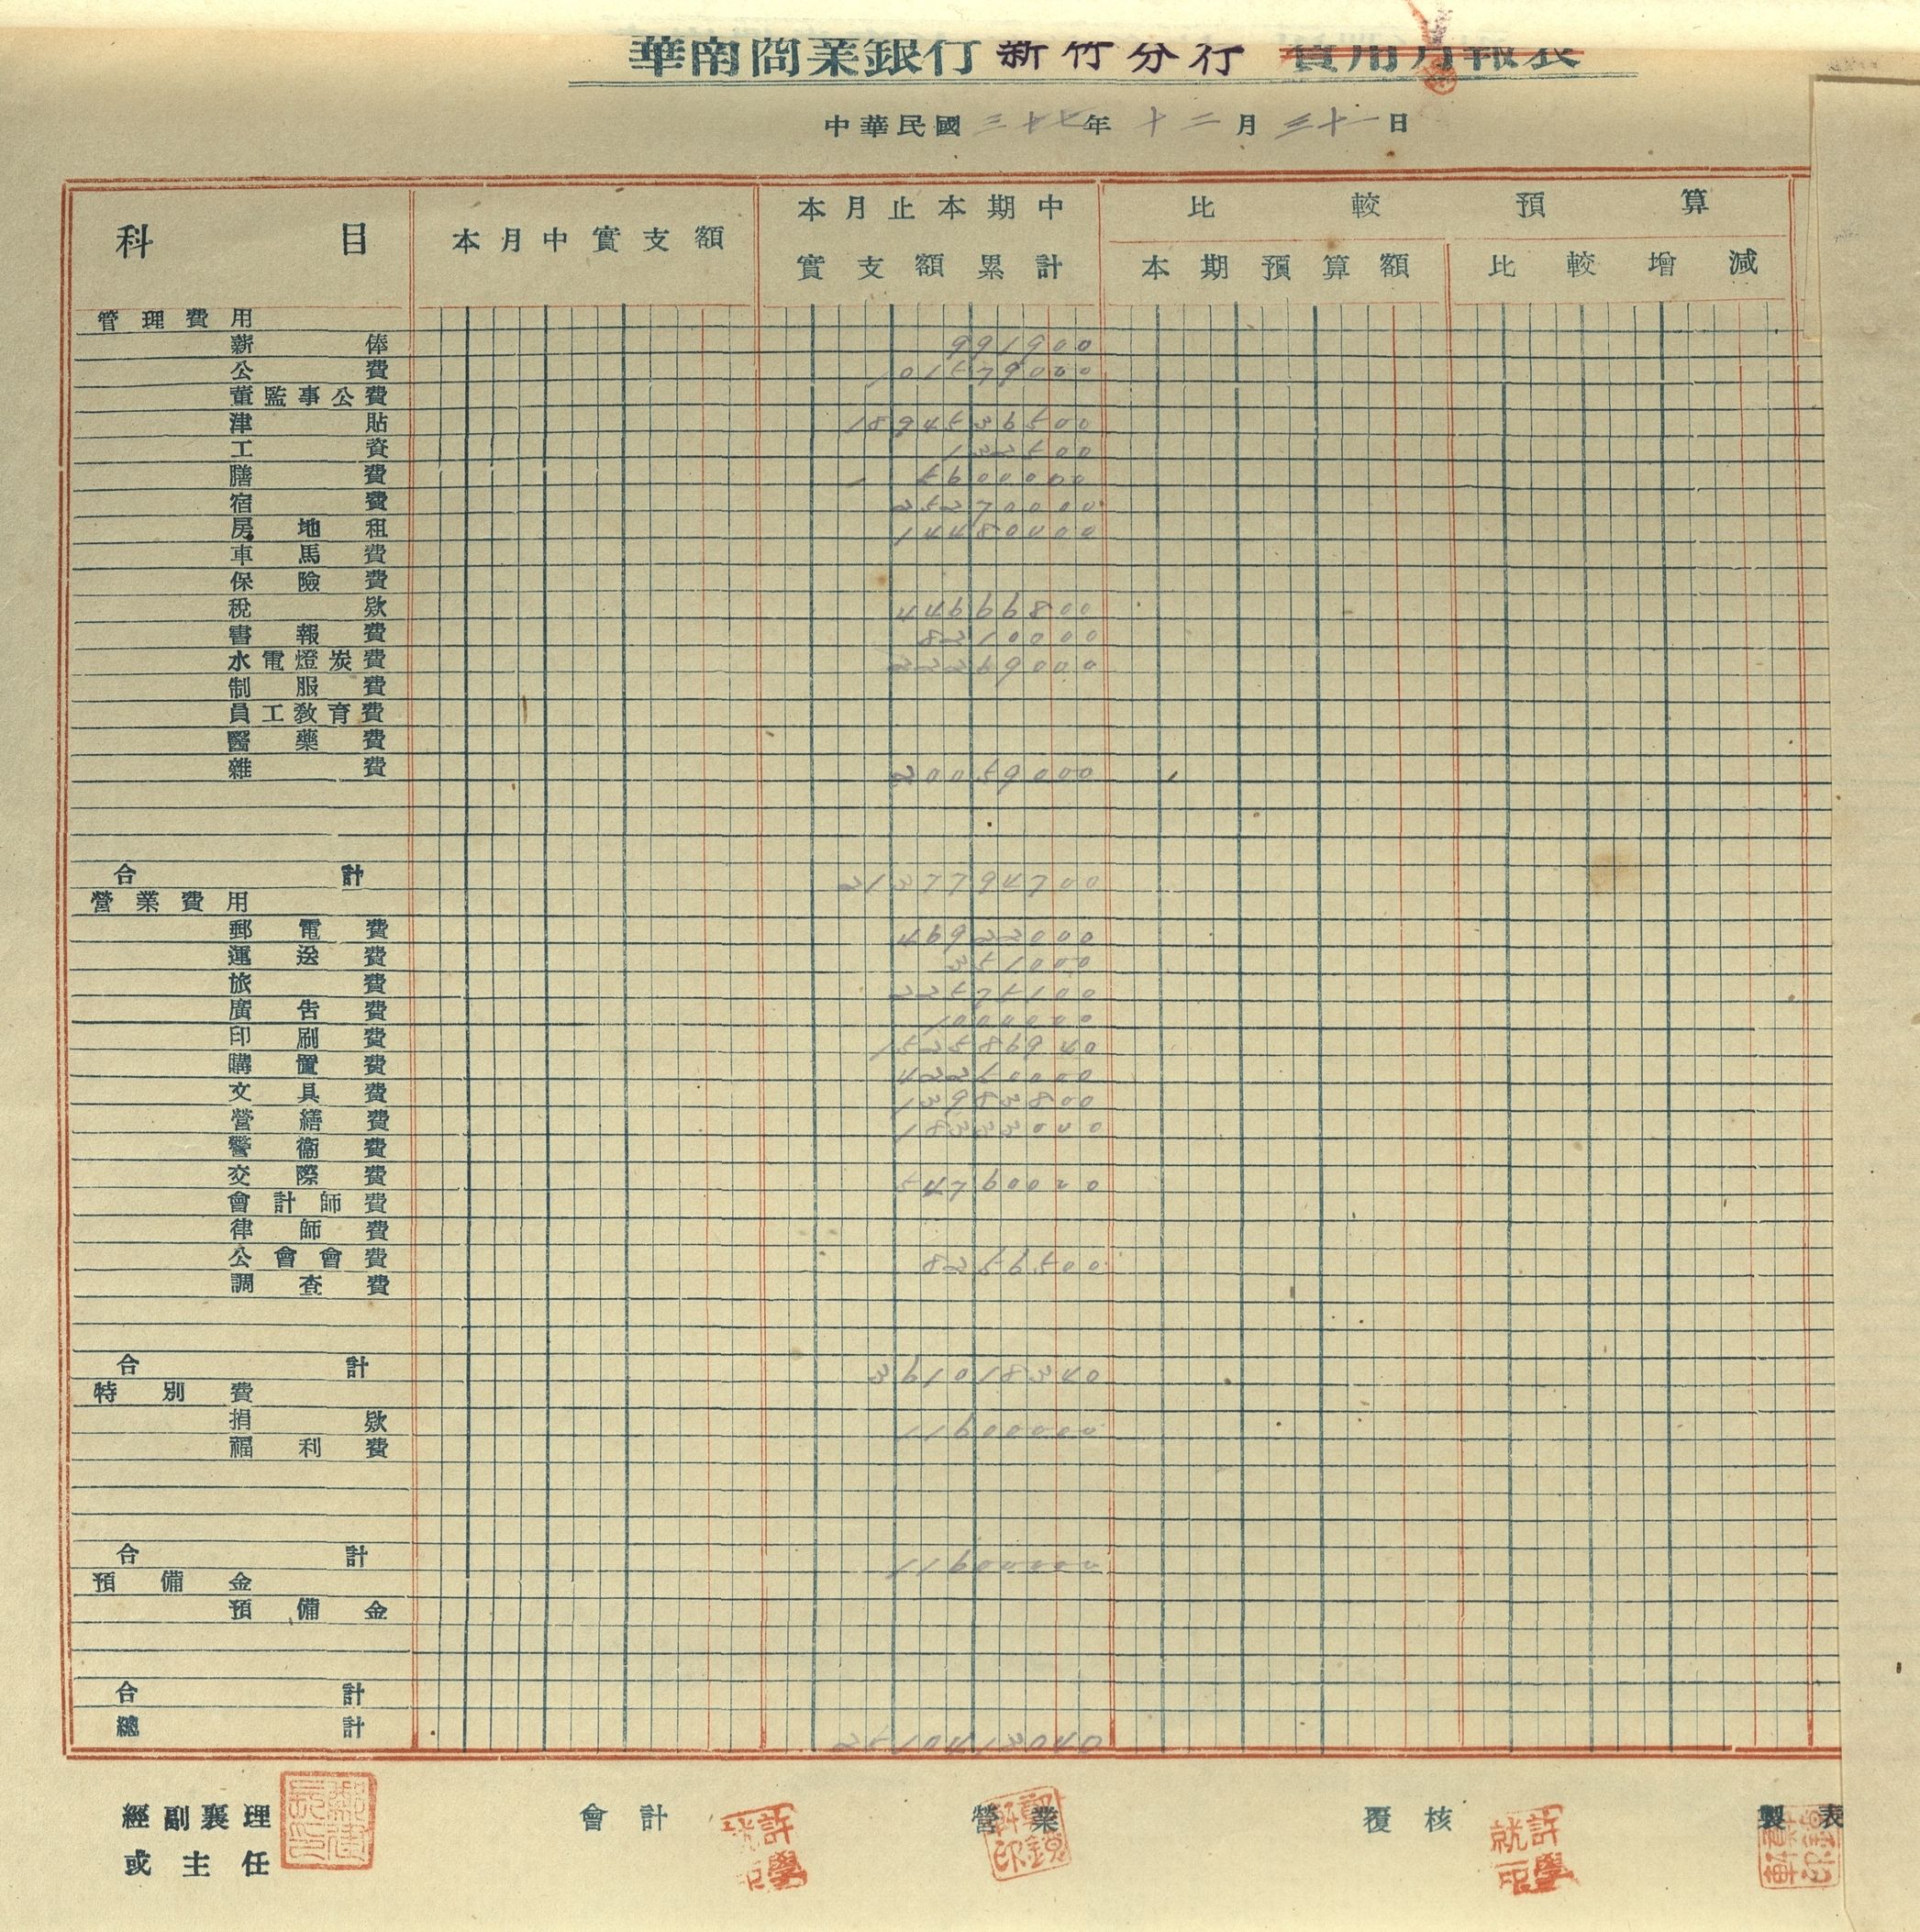 華南商業銀行 新竹分行 費用月報表
中華民國三十七年十二月三十一日
科目 本月中實支額 本月止本期中實支額累計 比較預算
本期預算額 比較增減
管理費用
薪俸 991900
公費 101579000
董監事公費
津貼 1894536500
工資 132500
膳費 5600000
宿費 25270000
房地租 14480000
車馬費
保險費
稅欵 44666800
書報費 8210000
水電燈炭費 22269000
制服費
員工教育費
醫藥費
雜費 20059000
合計 2137794700
營業費用
郵電費 46922000
運送費 351000
旅費 22575100
廣告費 1000000
印刷費 152586940
購置費 42260000
文具費 13983800
營繕費 18323000
警衞費
交際費 54760000
會計師費
律師費
公會會費 8256500
調查費
合計 361018340
特別費
捐欵 11600000
福利費
合計 11600000
預備金
預備金
合計
總計 2510413040
經副襄理或主任 會計 許學就印 營業 覆核 許學就印 製表